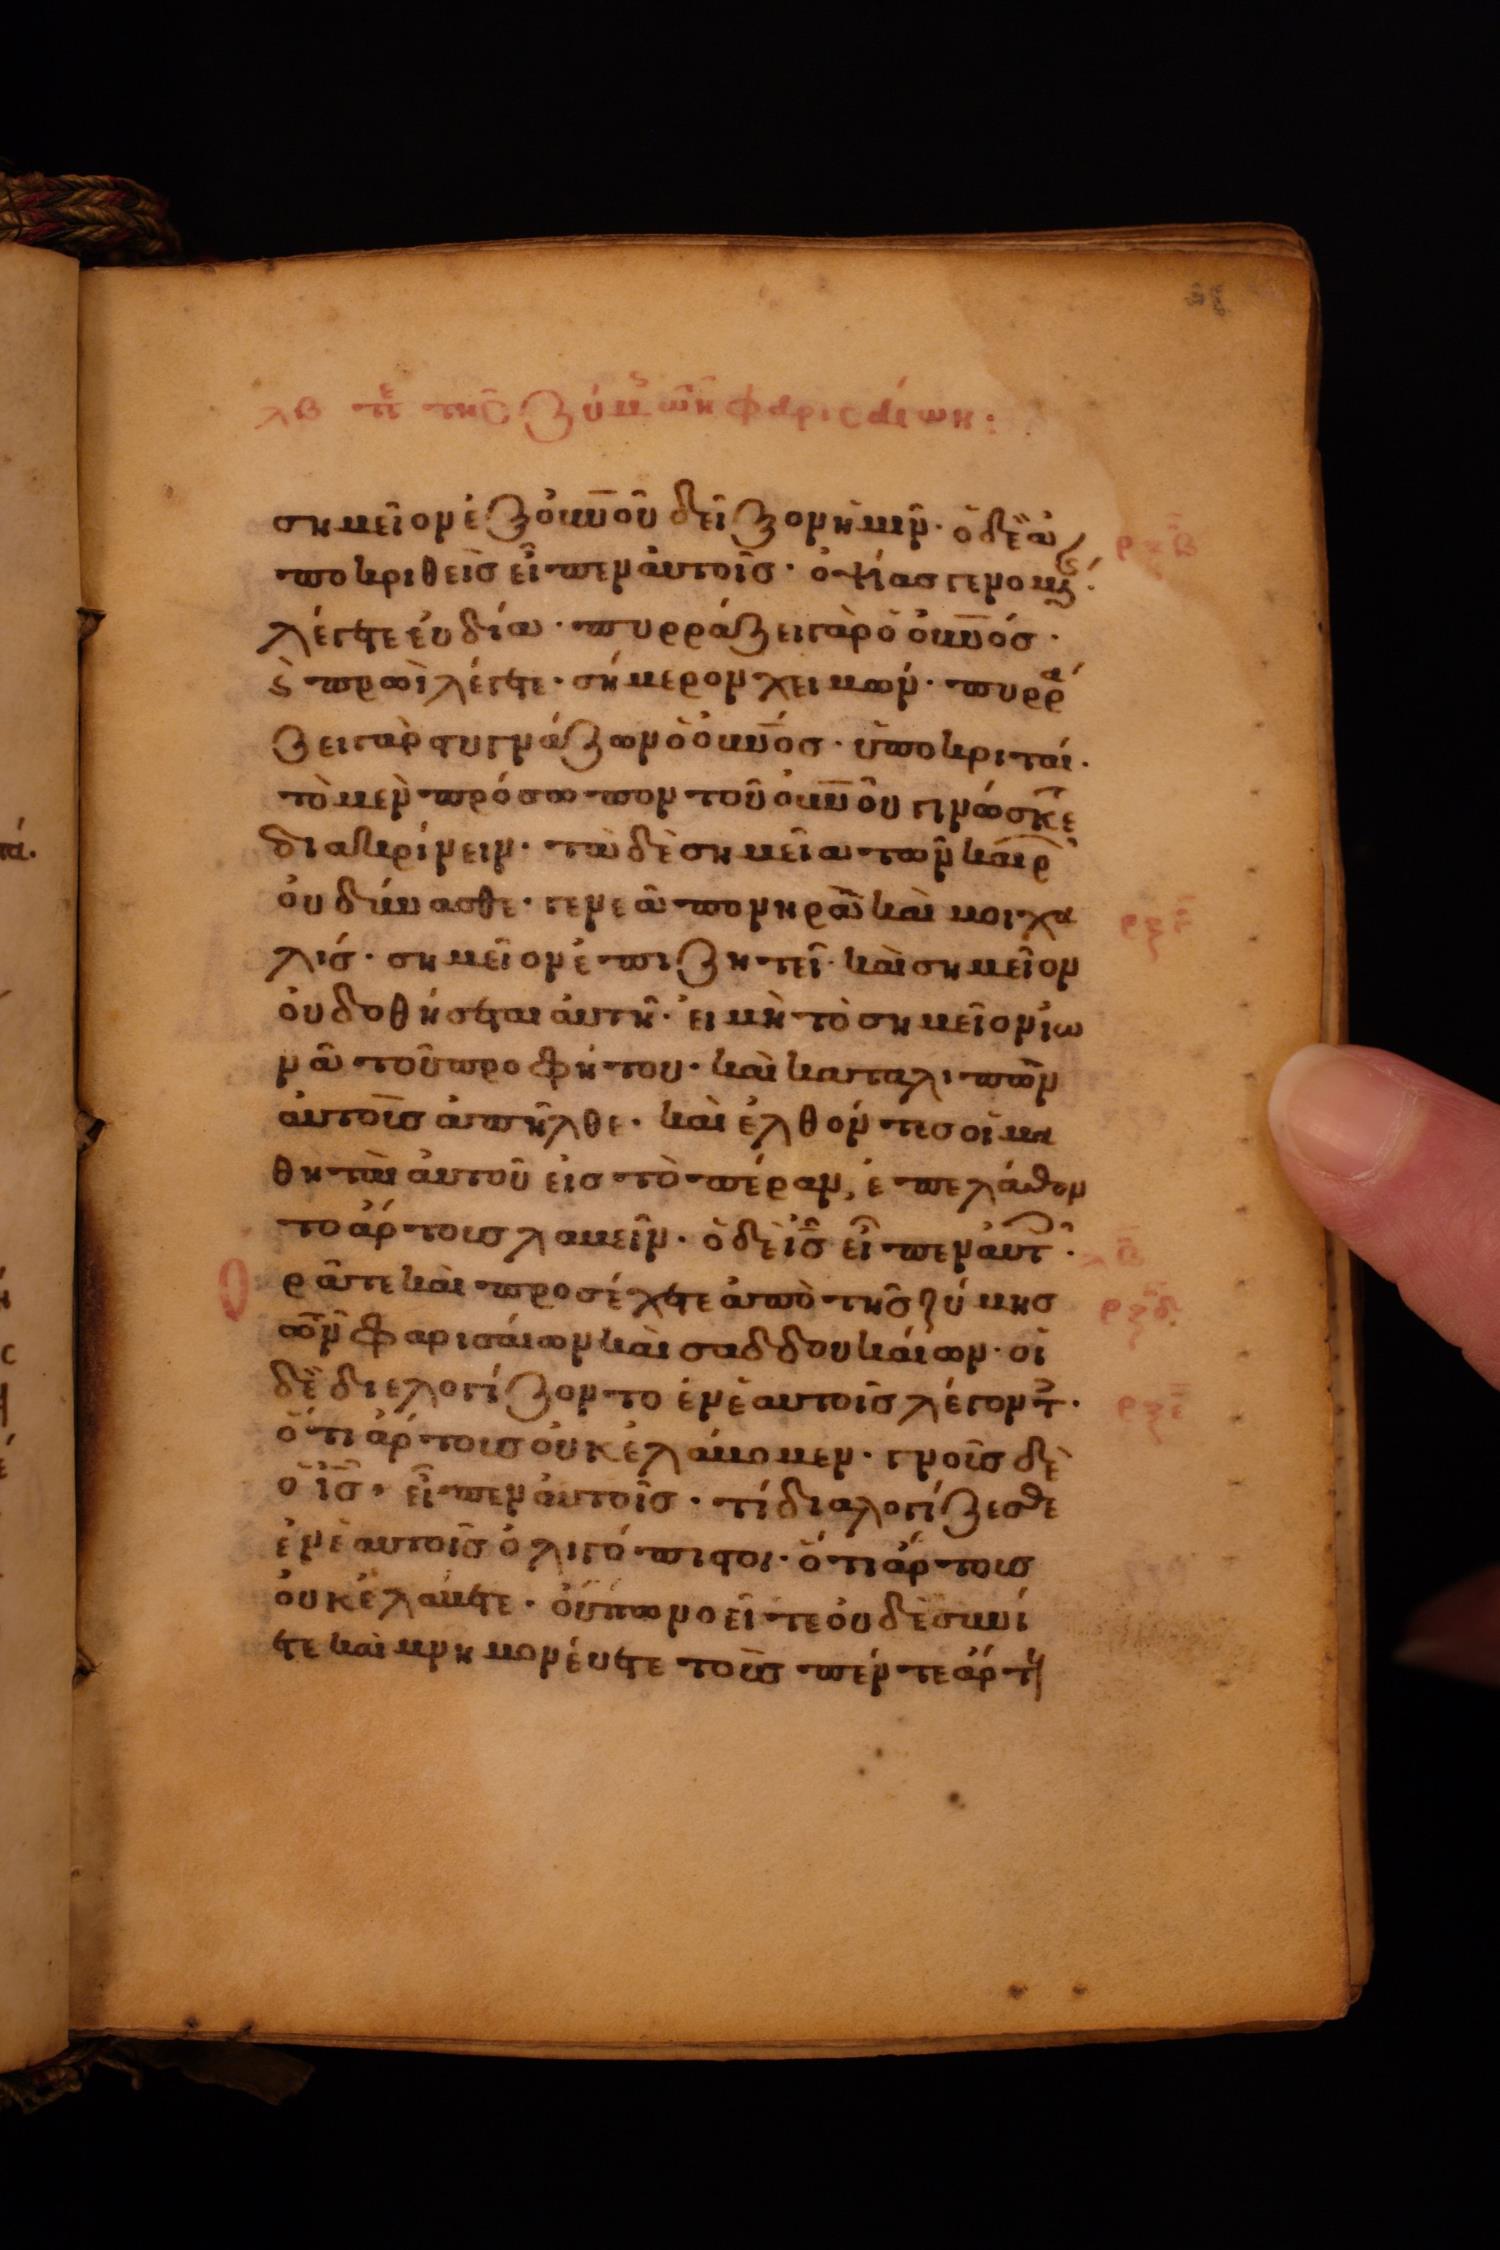 λβ πε τῆς ζύμης τῶν φαρισαίων·
σημεῖον ἐξ οὐνοῦ δεῖξον ἡμῖν· ὁ δὲ ἀ
ρξβ
ποκριθεὶς εἶπεν αὐτοῖς· ὀψίας γενομένης·
λέγετε εὐδία· πυρράζει γὰρ ὁ οὐνός·
ϛ πρωῒ λέγετε· σήμερον χειμών· πυρρά
ζει γὰρ στυγνάζων ὁ οὐνός· ὑποκριταί·
τὸ μὲν πρόσωπον τοῦ οὐνοῦ γινώσκετε
διακρίνειν· τὰ δὲ σημεῖα τῶν καιρῶν
οὐ δύνασθε· γενεὰ πονηρὰ καὶ μοιχα
ρξγ
λίς· σημεῖον ἐπιζητεῖ· καὶ σημεῖον
οὐ δοθήσεται αὐτῇ· εἰ μὴ τὸ σημεῖον ἰω
νᾶ τοῦ προφήτου· καὶ καταλιπὼν
αὐτοὺς ἀπῆλθε· καὶ ἐλθόντες οἱ μα
θηταὶ αὐτοῦ εἰς τὸ πέραν, ἐπελάθον
το ἄρτους λαβεῖν· ὁ δὲ ἰς εἶπεν αὐτοῖς·
λβ
Ο
ρᾶτε καὶ προσέχετε ἀπὸ τῆς ζύμης
ρξδ
τῶν φαρισαίων καὶ σαδδουκαίων· οἱ
δὲ διελογίζοντο ἐν ἑαυτοῖς λέγοντες·
ρξε
ὅτι ἄρτους οὐκ ἐλάβομεν· γνοῖς δὲ
ὁ ἰς· εἶπεν αὐτοῖς· τί διαλογίζεσθε
ἐν ἑαυτοῖς ὀλιγόπιστοι· ὅτι ἄρτους
οὐκ ἐλάβετε· οὔπω νοεῖτε οὐδὲ συνί
ετε καὶ μνημονέυετε τοὺς πέντε ἄρτους